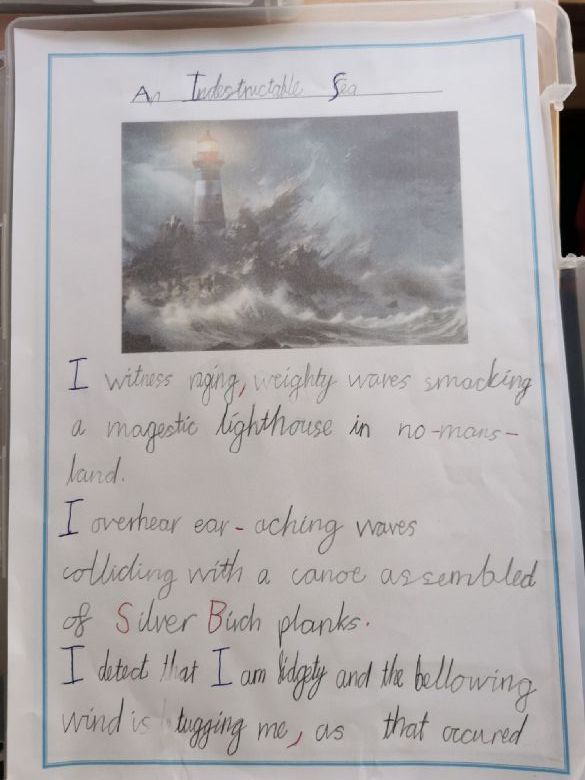 An Indestructable Sea
I witness raging, weighty waves smacking
a magestic lighthouse in no-mans-
land.
I overhear ear-aching waves
colliding with a canoe assembled
of Silver Birch planks.
I detect that I am fidgety and the bellowing
wind is tugging me, as that occured